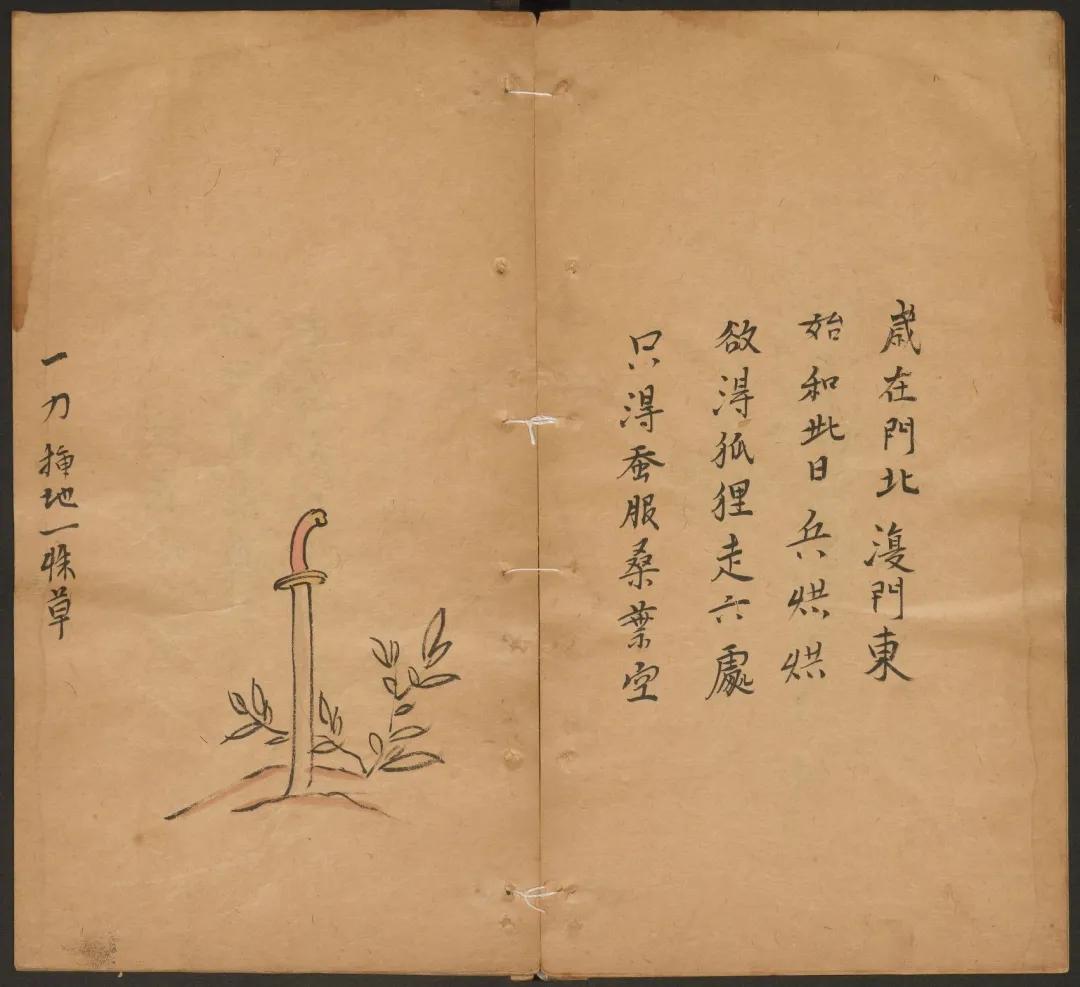 歲在門北澓門東
始和此日兵烘烘
欲淂狐狸走六處
只淂蚕服桑葉空
一刀揷地一株草